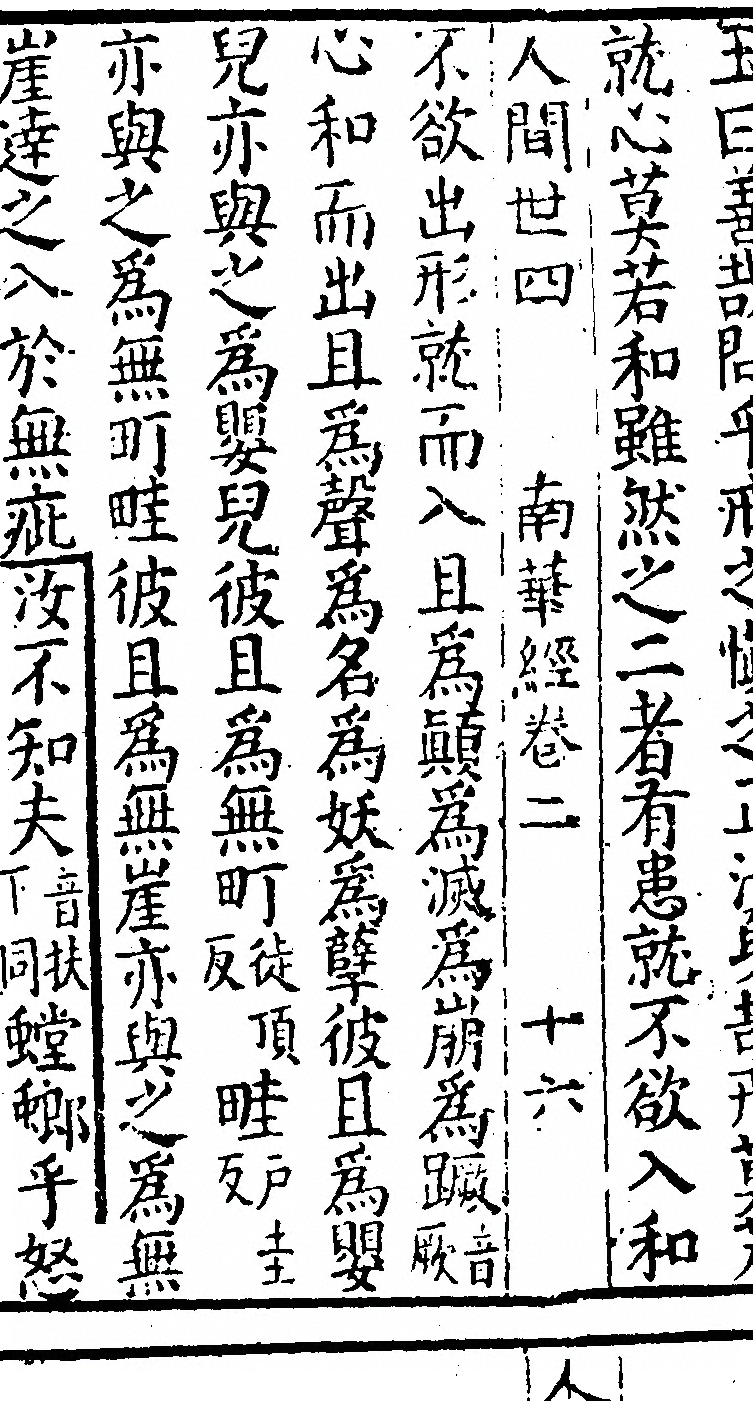 玉曰善哉問乎戒之慎之正汝身哉形莫若
就心莫若和雖然之二者有患就不欲入和
人間世四 南華經卷二 十六
不欲出形就而入且爲顛爲滅爲崩爲蹶音厥
心和而出且爲聲爲名爲妖爲孽彼且爲嬰
兒亦與之爲嬰兒彼且爲無町徒頂反畦戶圭反
亦與之爲無町畦彼且爲無崖亦與之爲無
崖達之入於無疵汝不知夫音扶下同螳螂乎怒
人